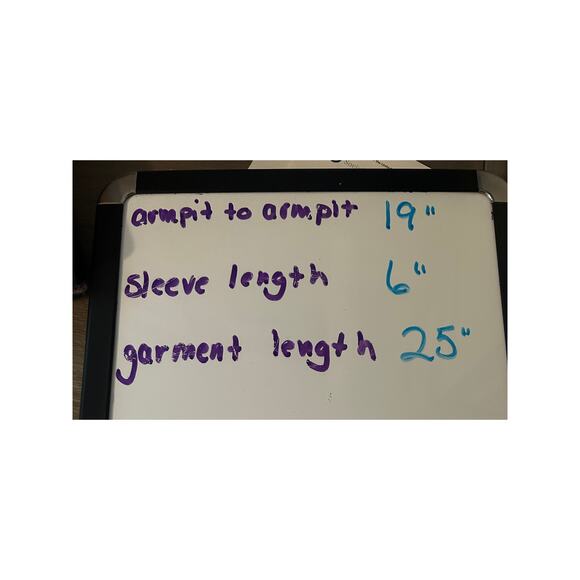 armpit to armpit 19"
sleeve length 6"
garment length 25"